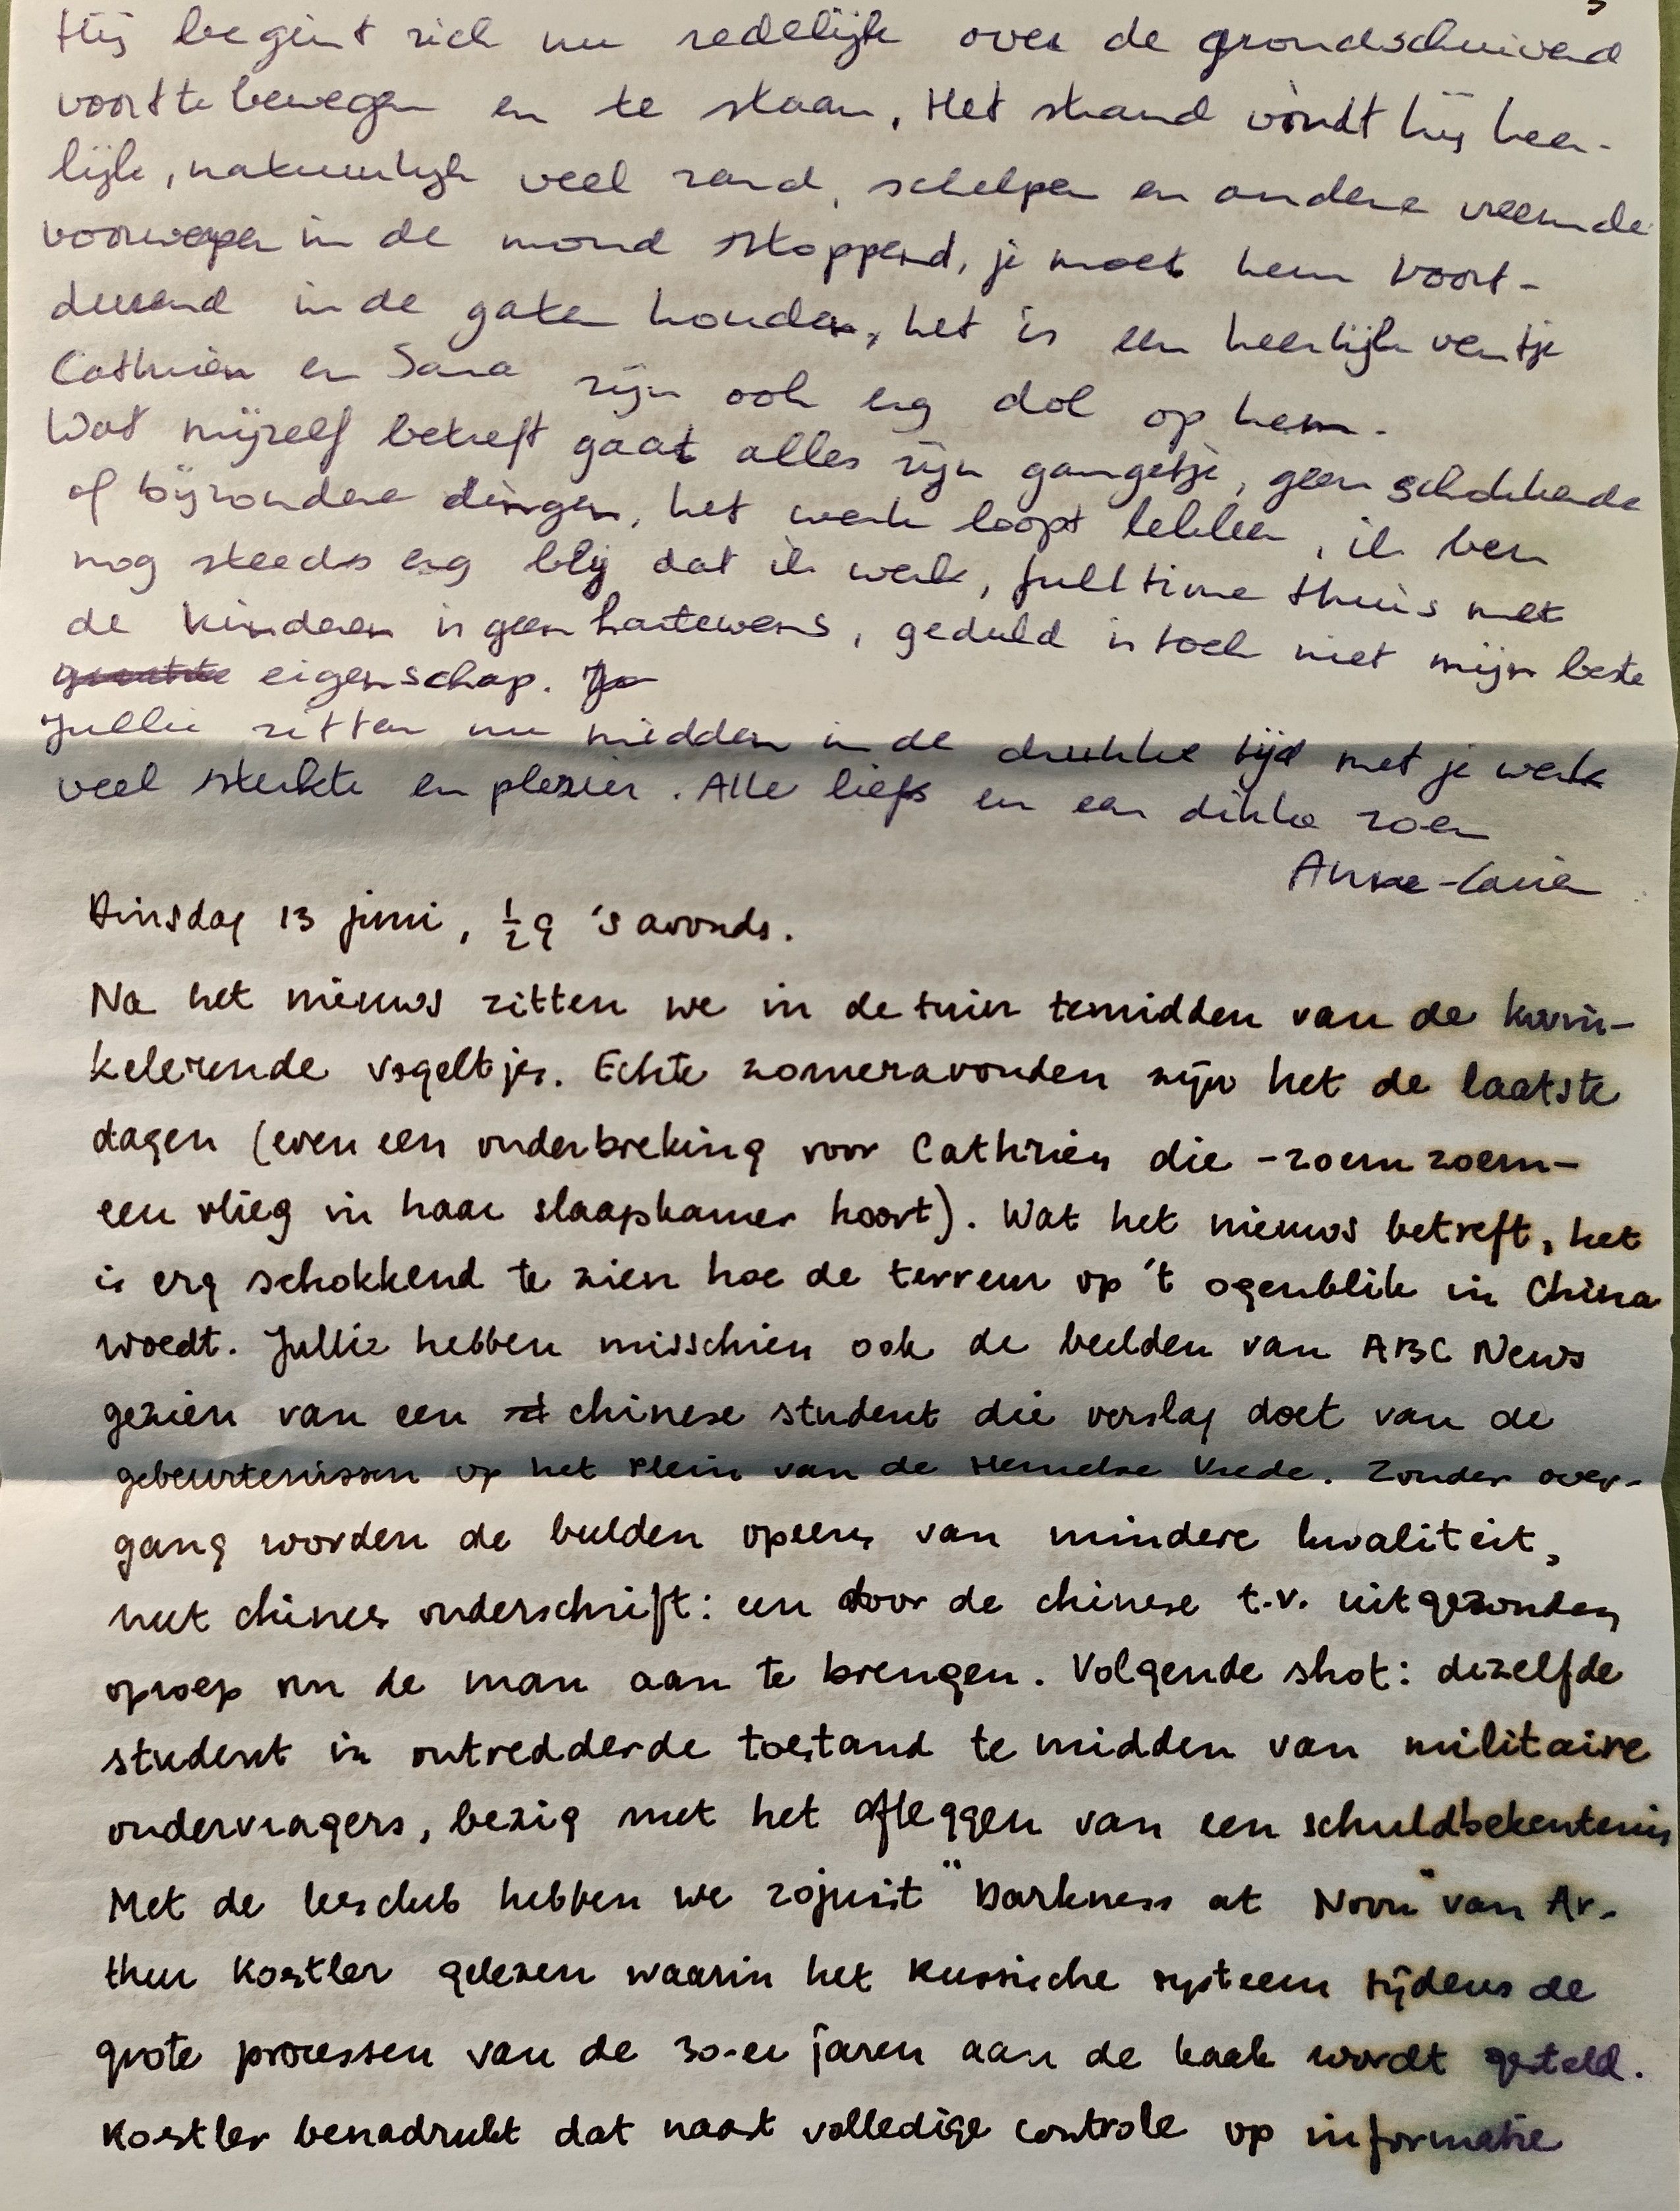 Hij begint zich nu redelijk over de grondschuivend
voort te bewegen en te staan, Het strand vindt hij heer-
lijk, natuurlijk veel zand, schelpen en andere vreemde
voorwerpen in de mond stoppend, je moet hem voort-
durend in de gaten houden, het is een heerlijk ventje
Cathrien en Sara zijn ook erg dol op hem.
Wat mijzelf betreft gaat alles zijn gangetje, geen schokkende
of bijzondere dingen, het werk loopt lekker, ik ben
nog steeds erg blij dat ik werk, fulltime thuis met
de kinderen is geen hartewens, geduld is toch niet mijn beste
eigenschap.
Jullie zitten nu midden in de drukke tijd met je werk
veel sterkte en plezier. Alle liefs en een dikke zoen
Dinsdag 13 juni, ½9 's avonds.
Na het nieuws zitten we in de tuin temidden van de kwin-
kelerende vogeltjes. Echte zomeravonden zijn het de laatste
dagen (even een onderbreking voor Cathrien die -zoem zoem-
een vlieg in haar slaapkamer hoort). Wat het nieuws betreft, het
is erg schokkend te zien hoe de terreur op 't ogenblik in China
woedt. Jullie hebben misschien ook de beelden van ABC News
gezien van een chinese student die verslag doet van de
gebeurtenissen op het Plein van de Hemelse Vrede. Zonder over-
gang worden de beelden opeens van mindere kwaliteit,
met chinees onderschrift: een door de chinese t.v. uitgezonden
oproep om de man aan te brengen. Volgende shot: dezelfde
student in ontredderde toestand te midden van militaire
ondervragers, bezig met het afleggen van een schuldbekentenis
Met de leesclub hebben we zojuist "Darkness at Noon" van Ar-
thur Koestler gelezen waarin het Russische systeem tijdens de
grote processen van de 30-er jaren aan de kaak wordt gesteld.
Koestler benadrukt dat naast volledige controle op informatie